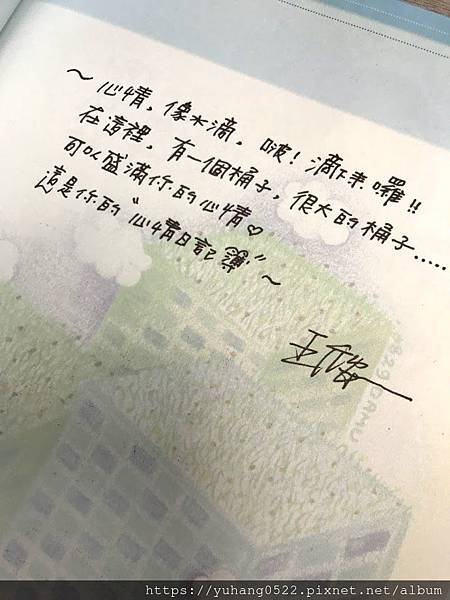 ～心情，像水滴。啵！滴下來囉!!
在這裡，有一個桶子，很大的桶子.....
可以盛滿你的心情♡
這是你的"心情日記簿"～
https://yuhang0522.pixnet.net/album